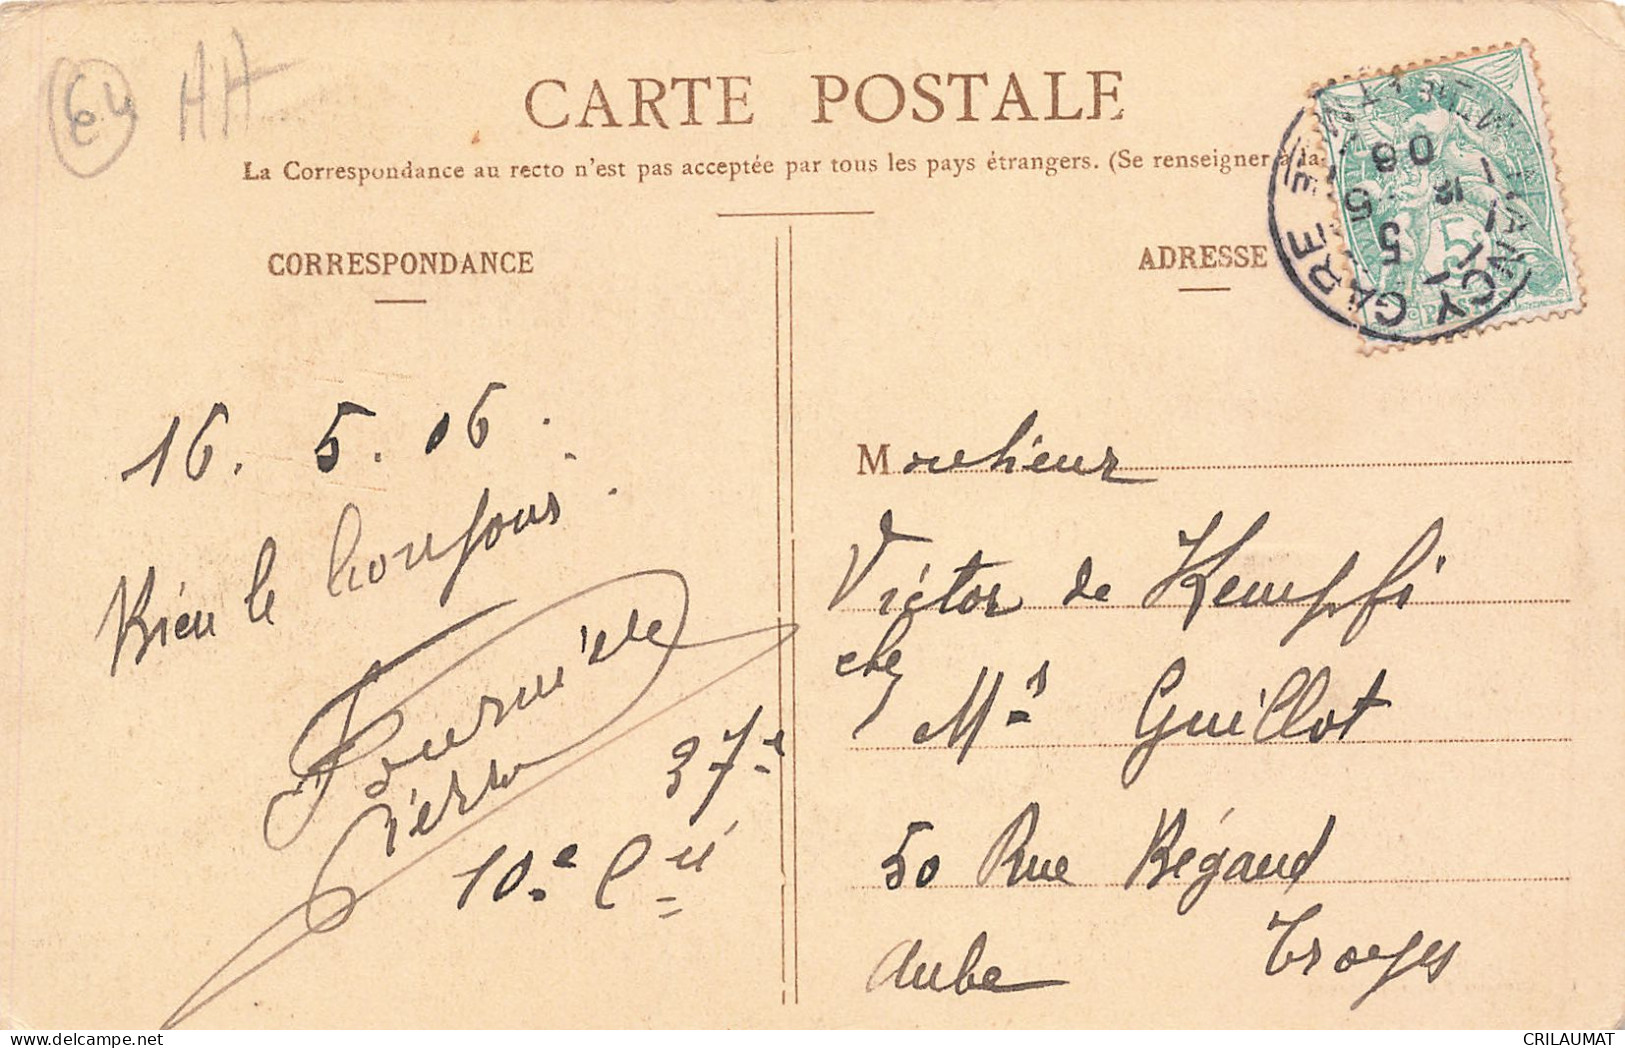 64 AA
CARTE POSTALE
La Correspondance au recto n'est pas acceptée par tous les pays étrangers. (Se renseigner à la
CORRESPONDANCE
ADRESSE
NANCY GARE
5
16. 5. 06.
Bien le bonjour.
Fourmi
Pierre
37e
10e Cie
Monsieur
Victor de Kempfi
chez
Mr Guillot
50 Rue Bégand
Aube Troyes
CRILAUMAT